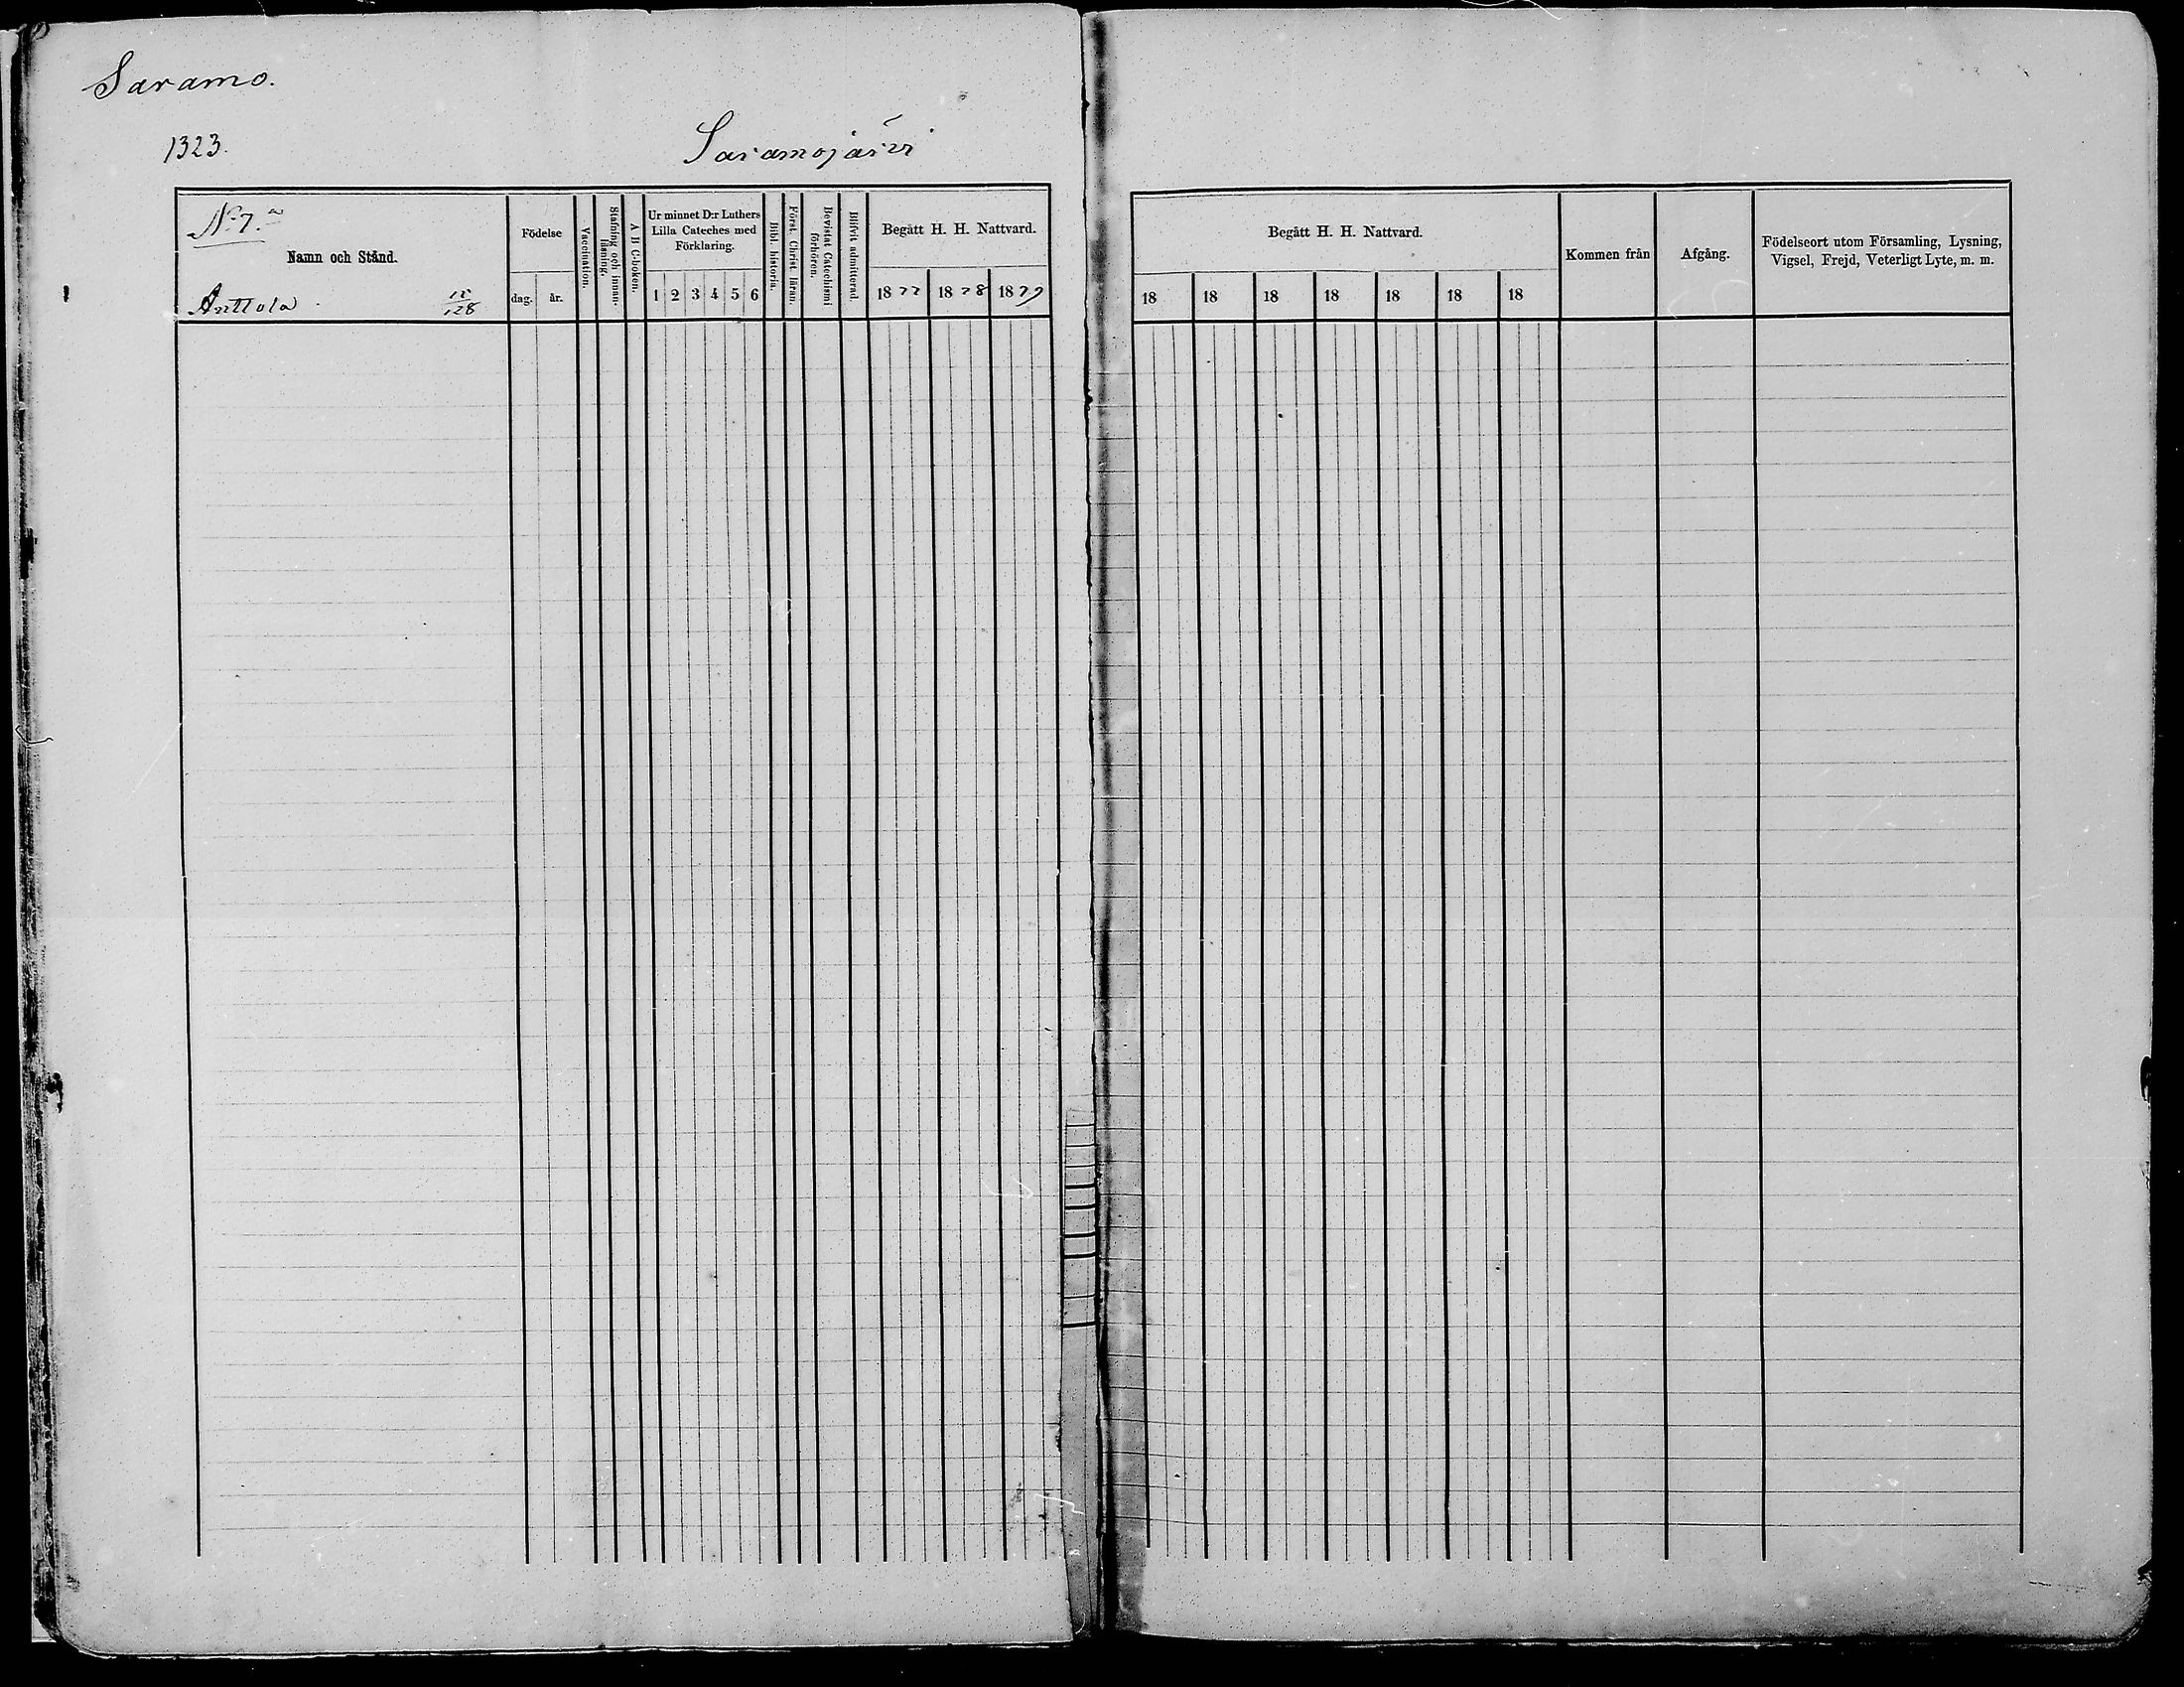 Saramo.
1323.
Saramojärvi
No 7. a
Namn och Stånd.
Anttola
128
Födelse
dag. år.
Vaccination.
Stafning och innan-läsning.
A B C-boken.
Ur minnet D:r Luthers
Lilla Cateches med
Förklaring.
1 2 3 4 5 6
Bibl. historia.
Först. Christ. läran.
Bevistat Catechismi förhören.
Blifvit admitterad.
Begått H. H. Nattvard.
1877 1878 1879
Begått H. H. Nattvard.
18 18 18 18 18 18 18
Kommen från
Afgång.
Födelseort utom Församling, Lysning,
Vigsel, Frejd, Veterligt Lyte, m. m.